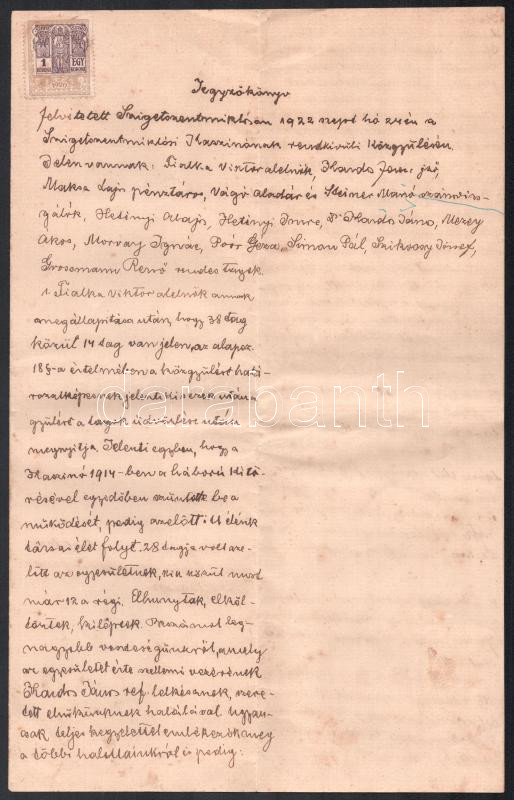 1 KORONA EGY KORONA
1920
Jegyzőkönyv
felvétetett Szigetszentmiklóson 1922 szept hó 24én a
Szigetszentmiklósi Kaszinónak rendkívüli közgyűlésén.
Jelen vannak: Fialka Viktor alelnök, Kardo János jző,
Maksa Lajos pénztáros, Vágó Aladár és Steiner Manó számvizs-
gálók, Hetényi Alajos, Hetényi Imre, Dr Kardo János, Mezey
Ákos, Morvay Ignác, Poór Géza, Simon Pál, Szikossy József,
Grossmann Rezső rendes tagok.
1. Fialka Viktor alelnök annak
megállapítása után, hogy 38 tag
közül 14 tag van jelen, az alapsz.
18§-a értelmében a közgyűlést hatá-
rozatképesnek jelenti ki s ezek után a
gyűlést a tagok üdvözlése után
megnyitja. Jelenti egyben, hogy a
Kaszinó 1914-ben a háború kitö-
résével egyidőben szüntette be a
működését, pedig azelőtt itt élénk
társas élet folyt. 28 tagja volt aze-
lőtt az egyesületnek, kik közül most
már 12 a régi. Elhunytak, elköl-
töztek, kiléptek. Beszámol leg-
nagyobb veszteségünkről, amely
az egyesületet érte szellemi vezérének
Kardos János ref. lelkésznek, szere-
tett elnökünknek halálával. Ugyan-
csak teljes kegyelettel emlékezik meg
a többi halottainkról és pedig:
darabanth